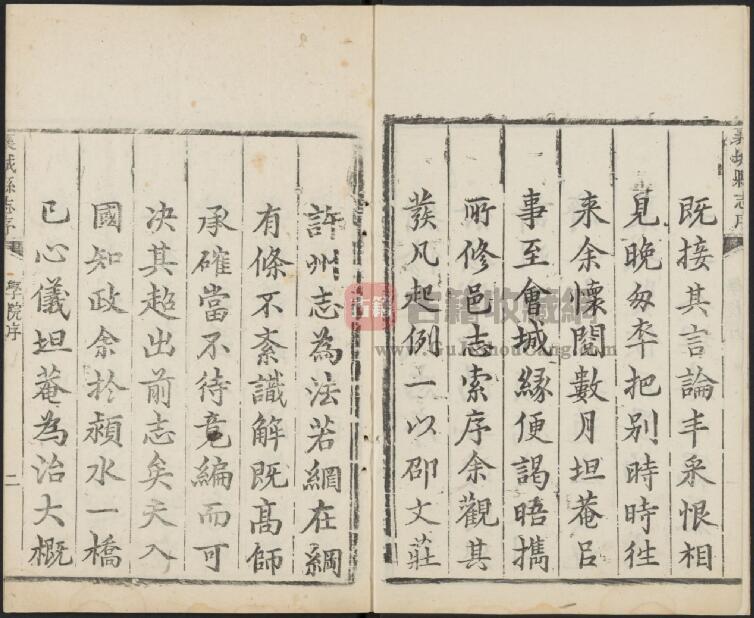 既接其言論丰采恨相
見晚匆卒把别時時徃
来余懷閲數月坦菴㠯
事至會城緣便謁晤攜
所修邑志索序余觀其
發凡起例一以邵文莊
許州志為法若綱在綱
有條不紊識解既高師
承確當不待竟編而可
决其超出前志矣夫入
國知政余扵潁水一橋
已心儀坦菴為治大概
襄城縣志序
學院序
二
古籍收藏網